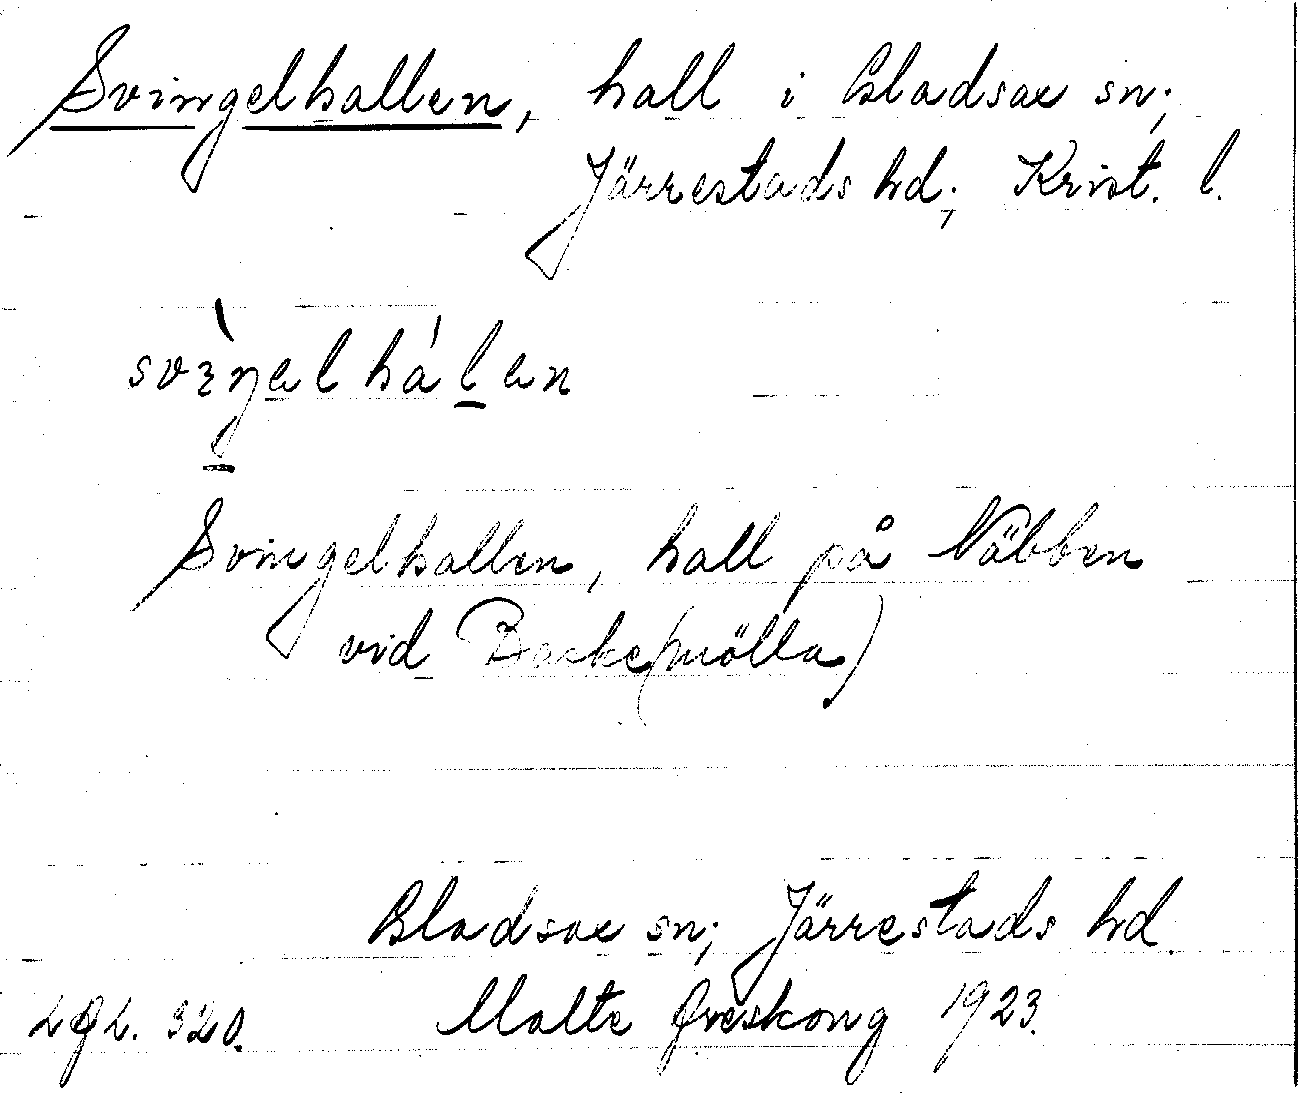 Svingelhallen, hall i Gladsax sn;
Järrestads hd; Krist. l.
Svingelhallen, hall på Näbben
vid Backe(mölla)
Gladsax sn; Järrestads hd.
Malte Areskoug 1923.
320.